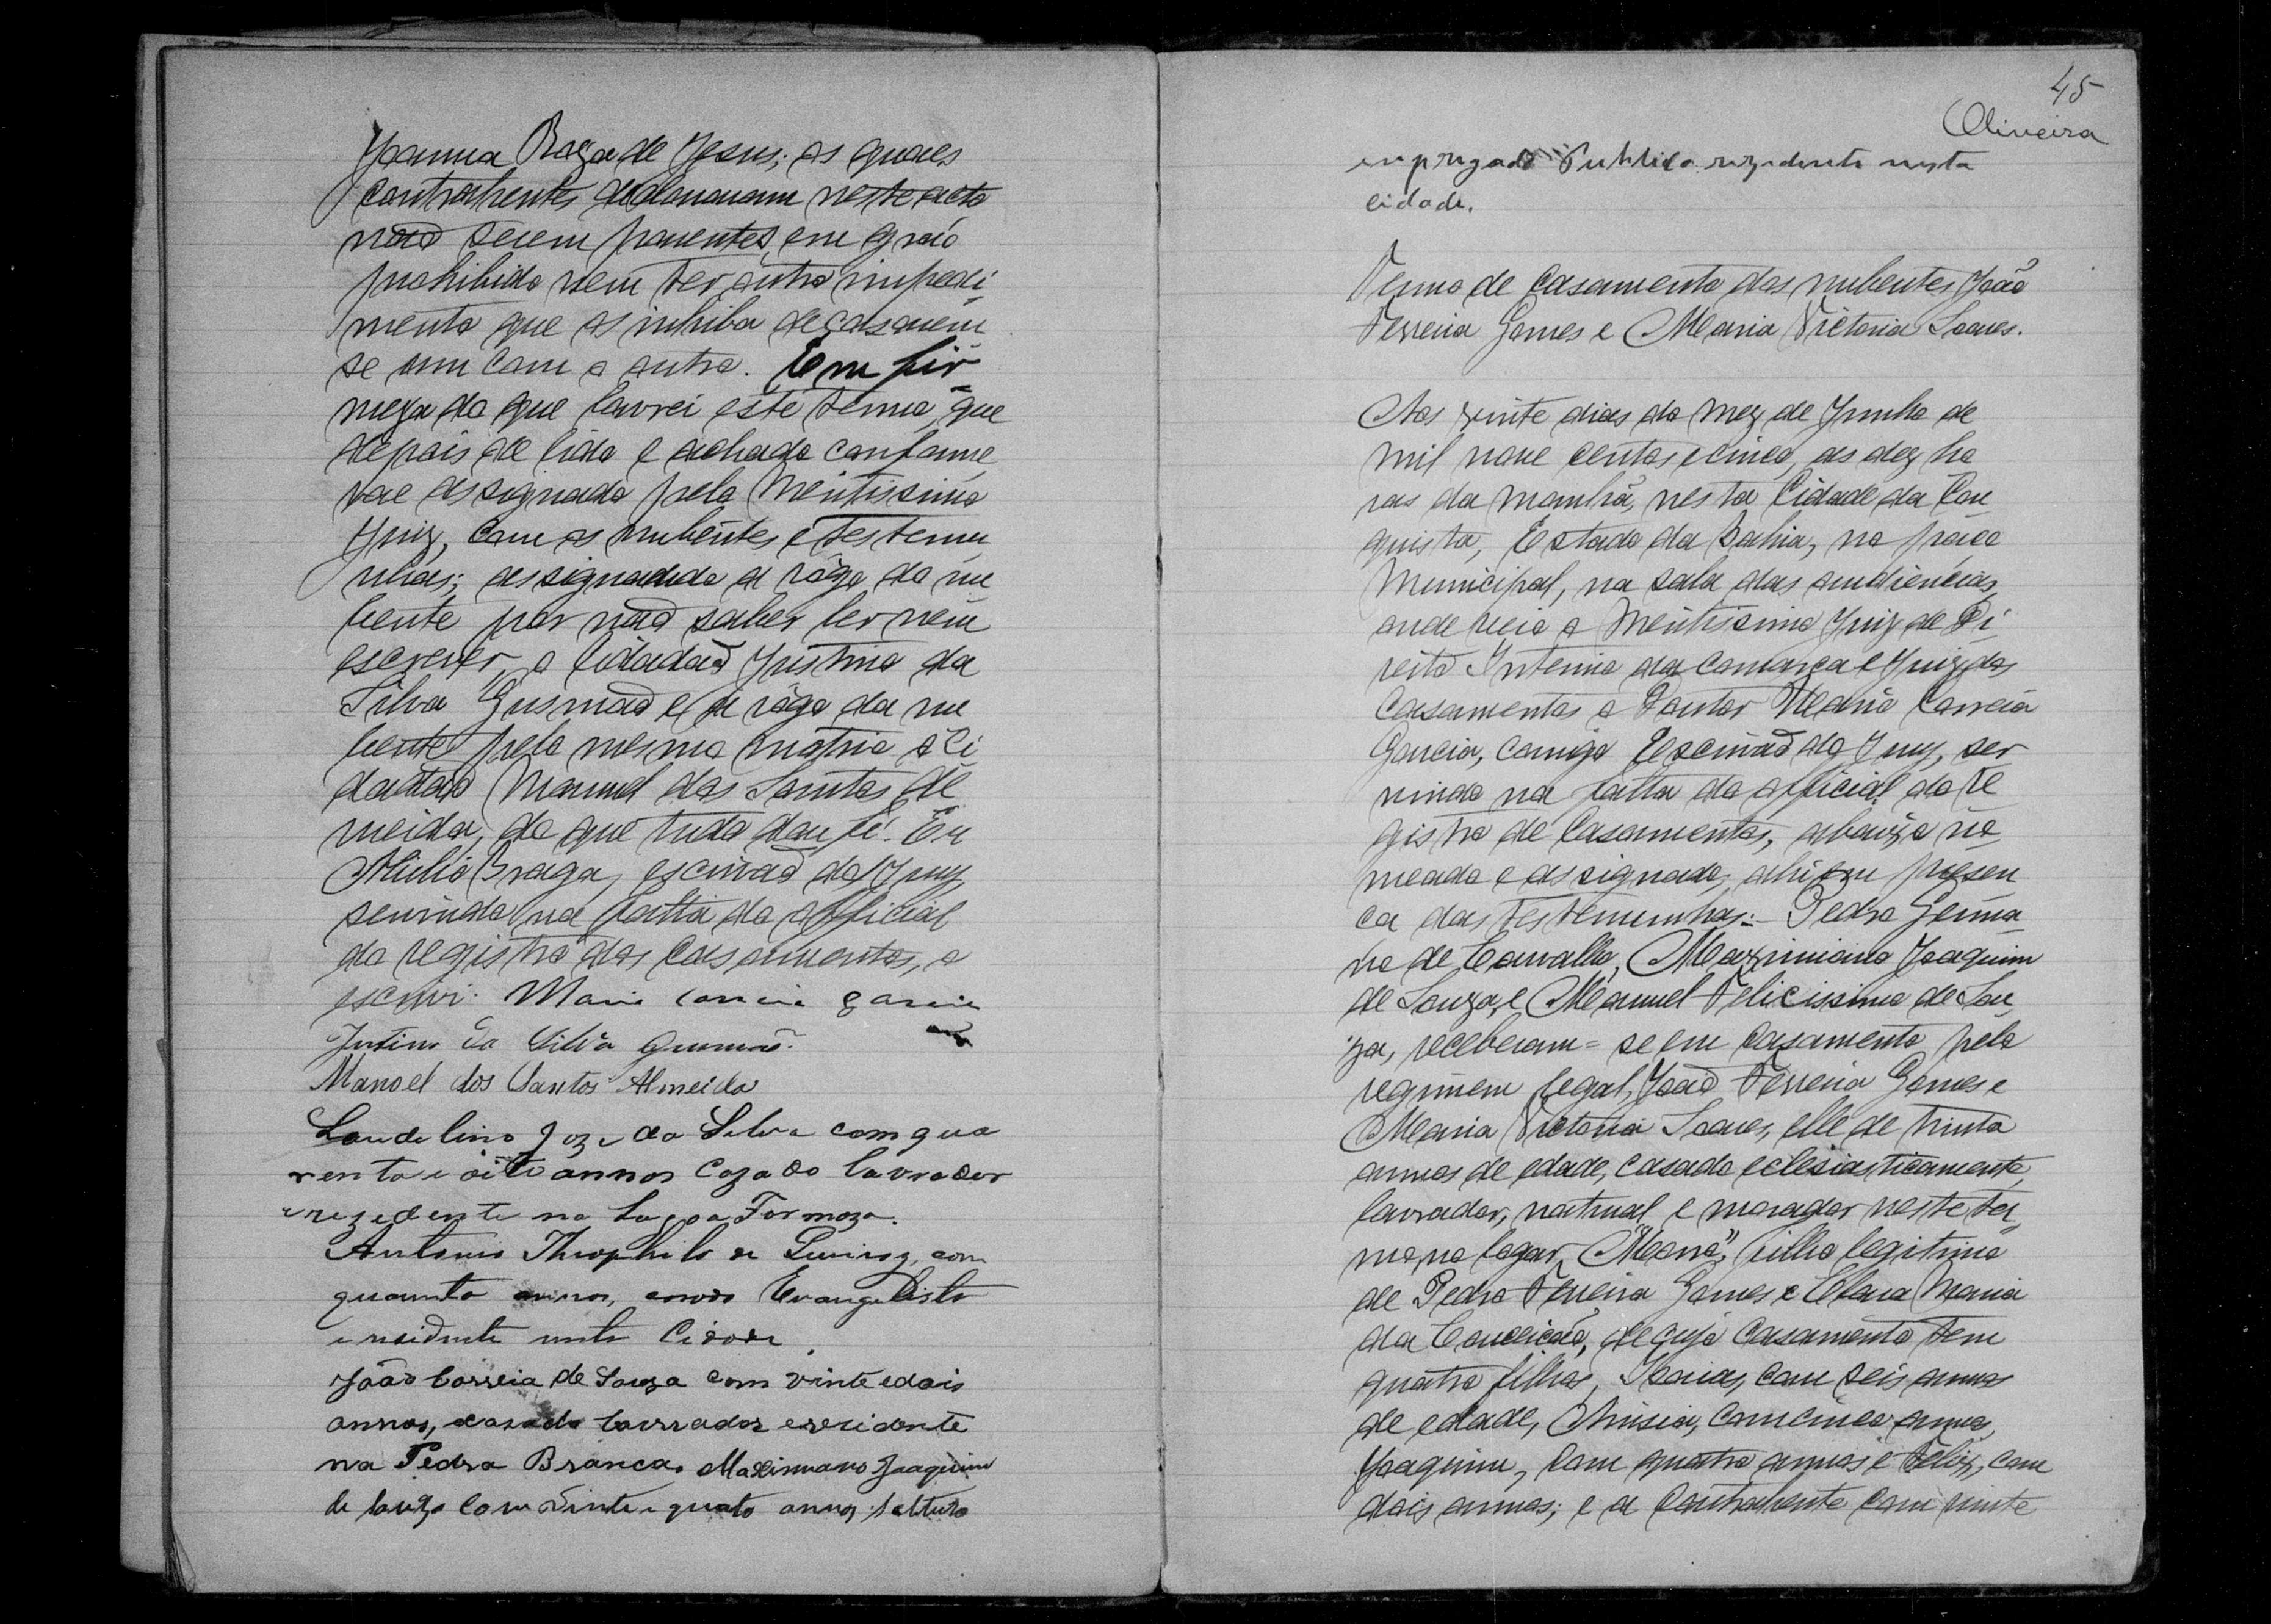 Joanna Roza de Jesus; os quaes
contrahentes declararam neste acto
não serem parentes em gráo
prohibido nem ter outro impedi
mento que os inhiba de casarem
se um com o outro. Em fir=
meza do que lavrei este termo que
depois de lido e achado conforme
vae assignado pelo Meritissimo
Juiz, com os nubentes e testemu
nhas; assignando a rôgo do nu
bente por não saber ler nem
escrever, o Cidadão Justino da
Silva Gusmão e a rôgo da nu
bente pelo mesmo motivo o Ci
dadão Manuel dos Santos Al
meida, do que tudo dou fé. Eu
Braga, escrivão do Jury,
servindo na falta do official
do registro dos casamentos, o
escrevi. Mario Correia Garcia
Justino da Silva Gusmão.
Manoel dos Santos Almeida
Laudelino Joze da Silva com qua
renta e oito annos Cazado lavrador
e rezedente na Lagoa Formoza.
Antonio Theophilo de Queiroz, com
quarenta annos, casado Evangelista
e residente nesta Cidade
João Correia de Souza com vinte e dois
annos, casado lavrador e residente
na Pedra Branca. Maximiano Joaquim
de Souza com vinte e quatro annos solteiro
45
Oliveira
empregado Publico rezidente nesta
cidade.
Termo de Casamento dos nubentes João
Ferreira Gomes e Maria Victoria Soares.
Aos vinte dias do mez de Junho de
mil nove centos e cinco, as dez ho
ras da manhã, nesta Cidade da Con
quista, Estado da Bahia, no paço
Municipal, na sala das audiencias
onde veio o Meritissimo Juiz de Di
reito Interino da Comarca e Juiz dos
Casamentos o Doutor Mario Correia
Garcia, comigo Escrivão do Jury, ser
vindo na falta do official do re
gistro de Casamentos, abaixo no
meado e assignado, ahi em presen
ça das testemunhas:- Pedro Germa
no de Carvalho, Maximiano Joaquim
de Souza, e Manuel Felicissimo de Sou
za, receberam=se em Casamento pelo
regimem legal, João Ferreira Gomes e
Maria Victoria Soares, elle de trinta
annos de edade, casado eclesiasticamente,
lavrador, natural e morador neste ter
mo, no logar, filho legitimo
de Pedro Ferreira Gomes e Clara Maria
da Conceição, de cujo Casamento tem
quatro filhos, Isaias, com seis annos
de edade, Anisia, com cinco annos,
Joaquim, com quatro annos e Felix, com
dois annos; e a Contrahente com vinte